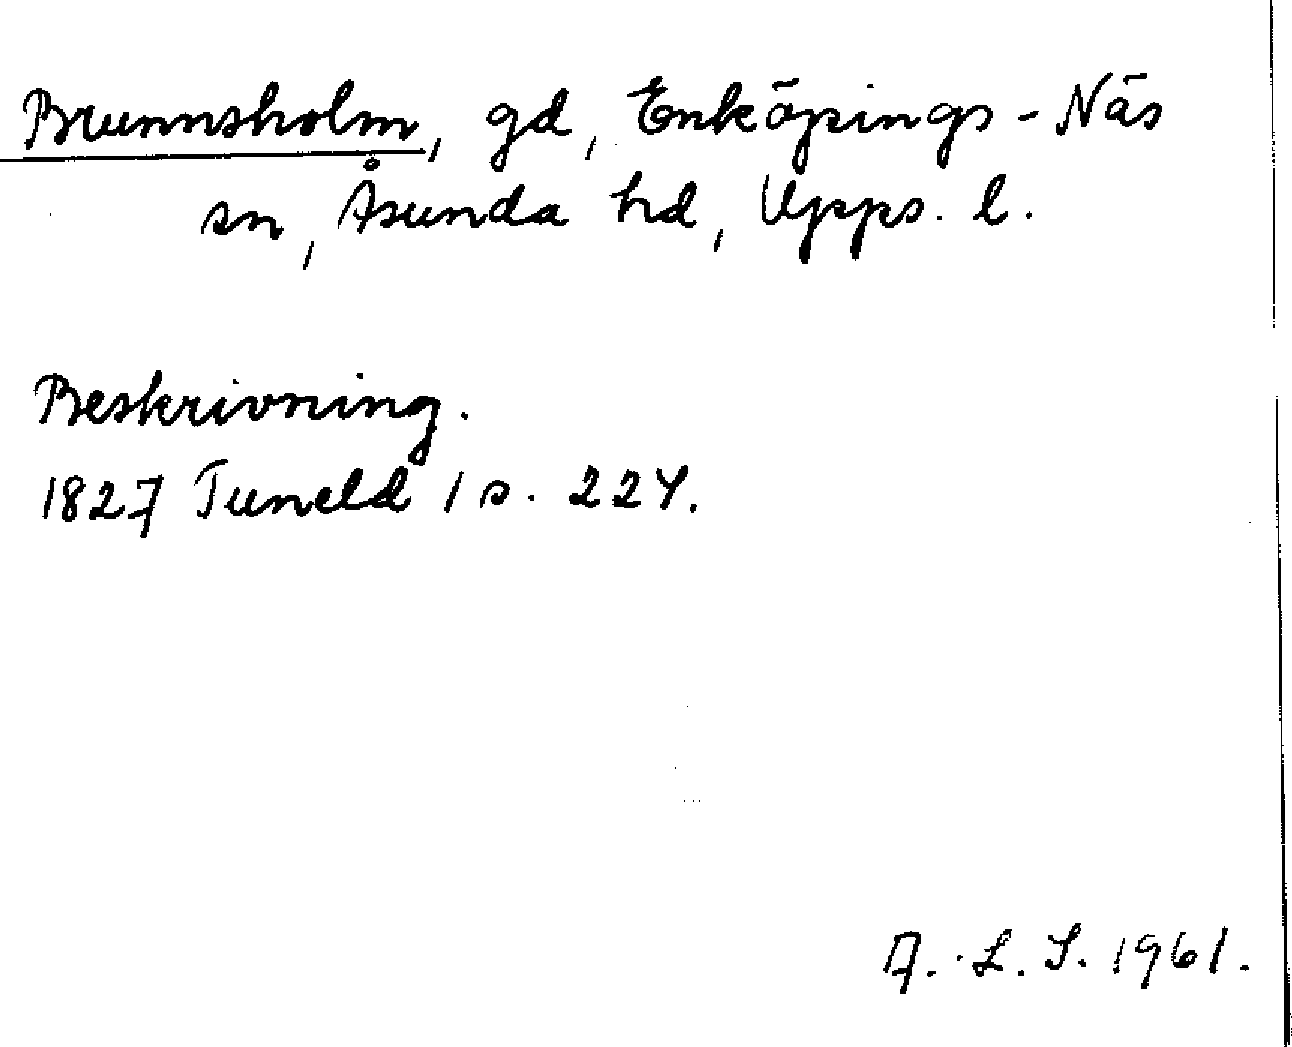 Brunnsholm, gd, Enköpings-Näs
sn, Åsunda hd, Upps. l.
Beskrivning.
1827 Tuneld 1 s. 224.
A. L. S. 1961.